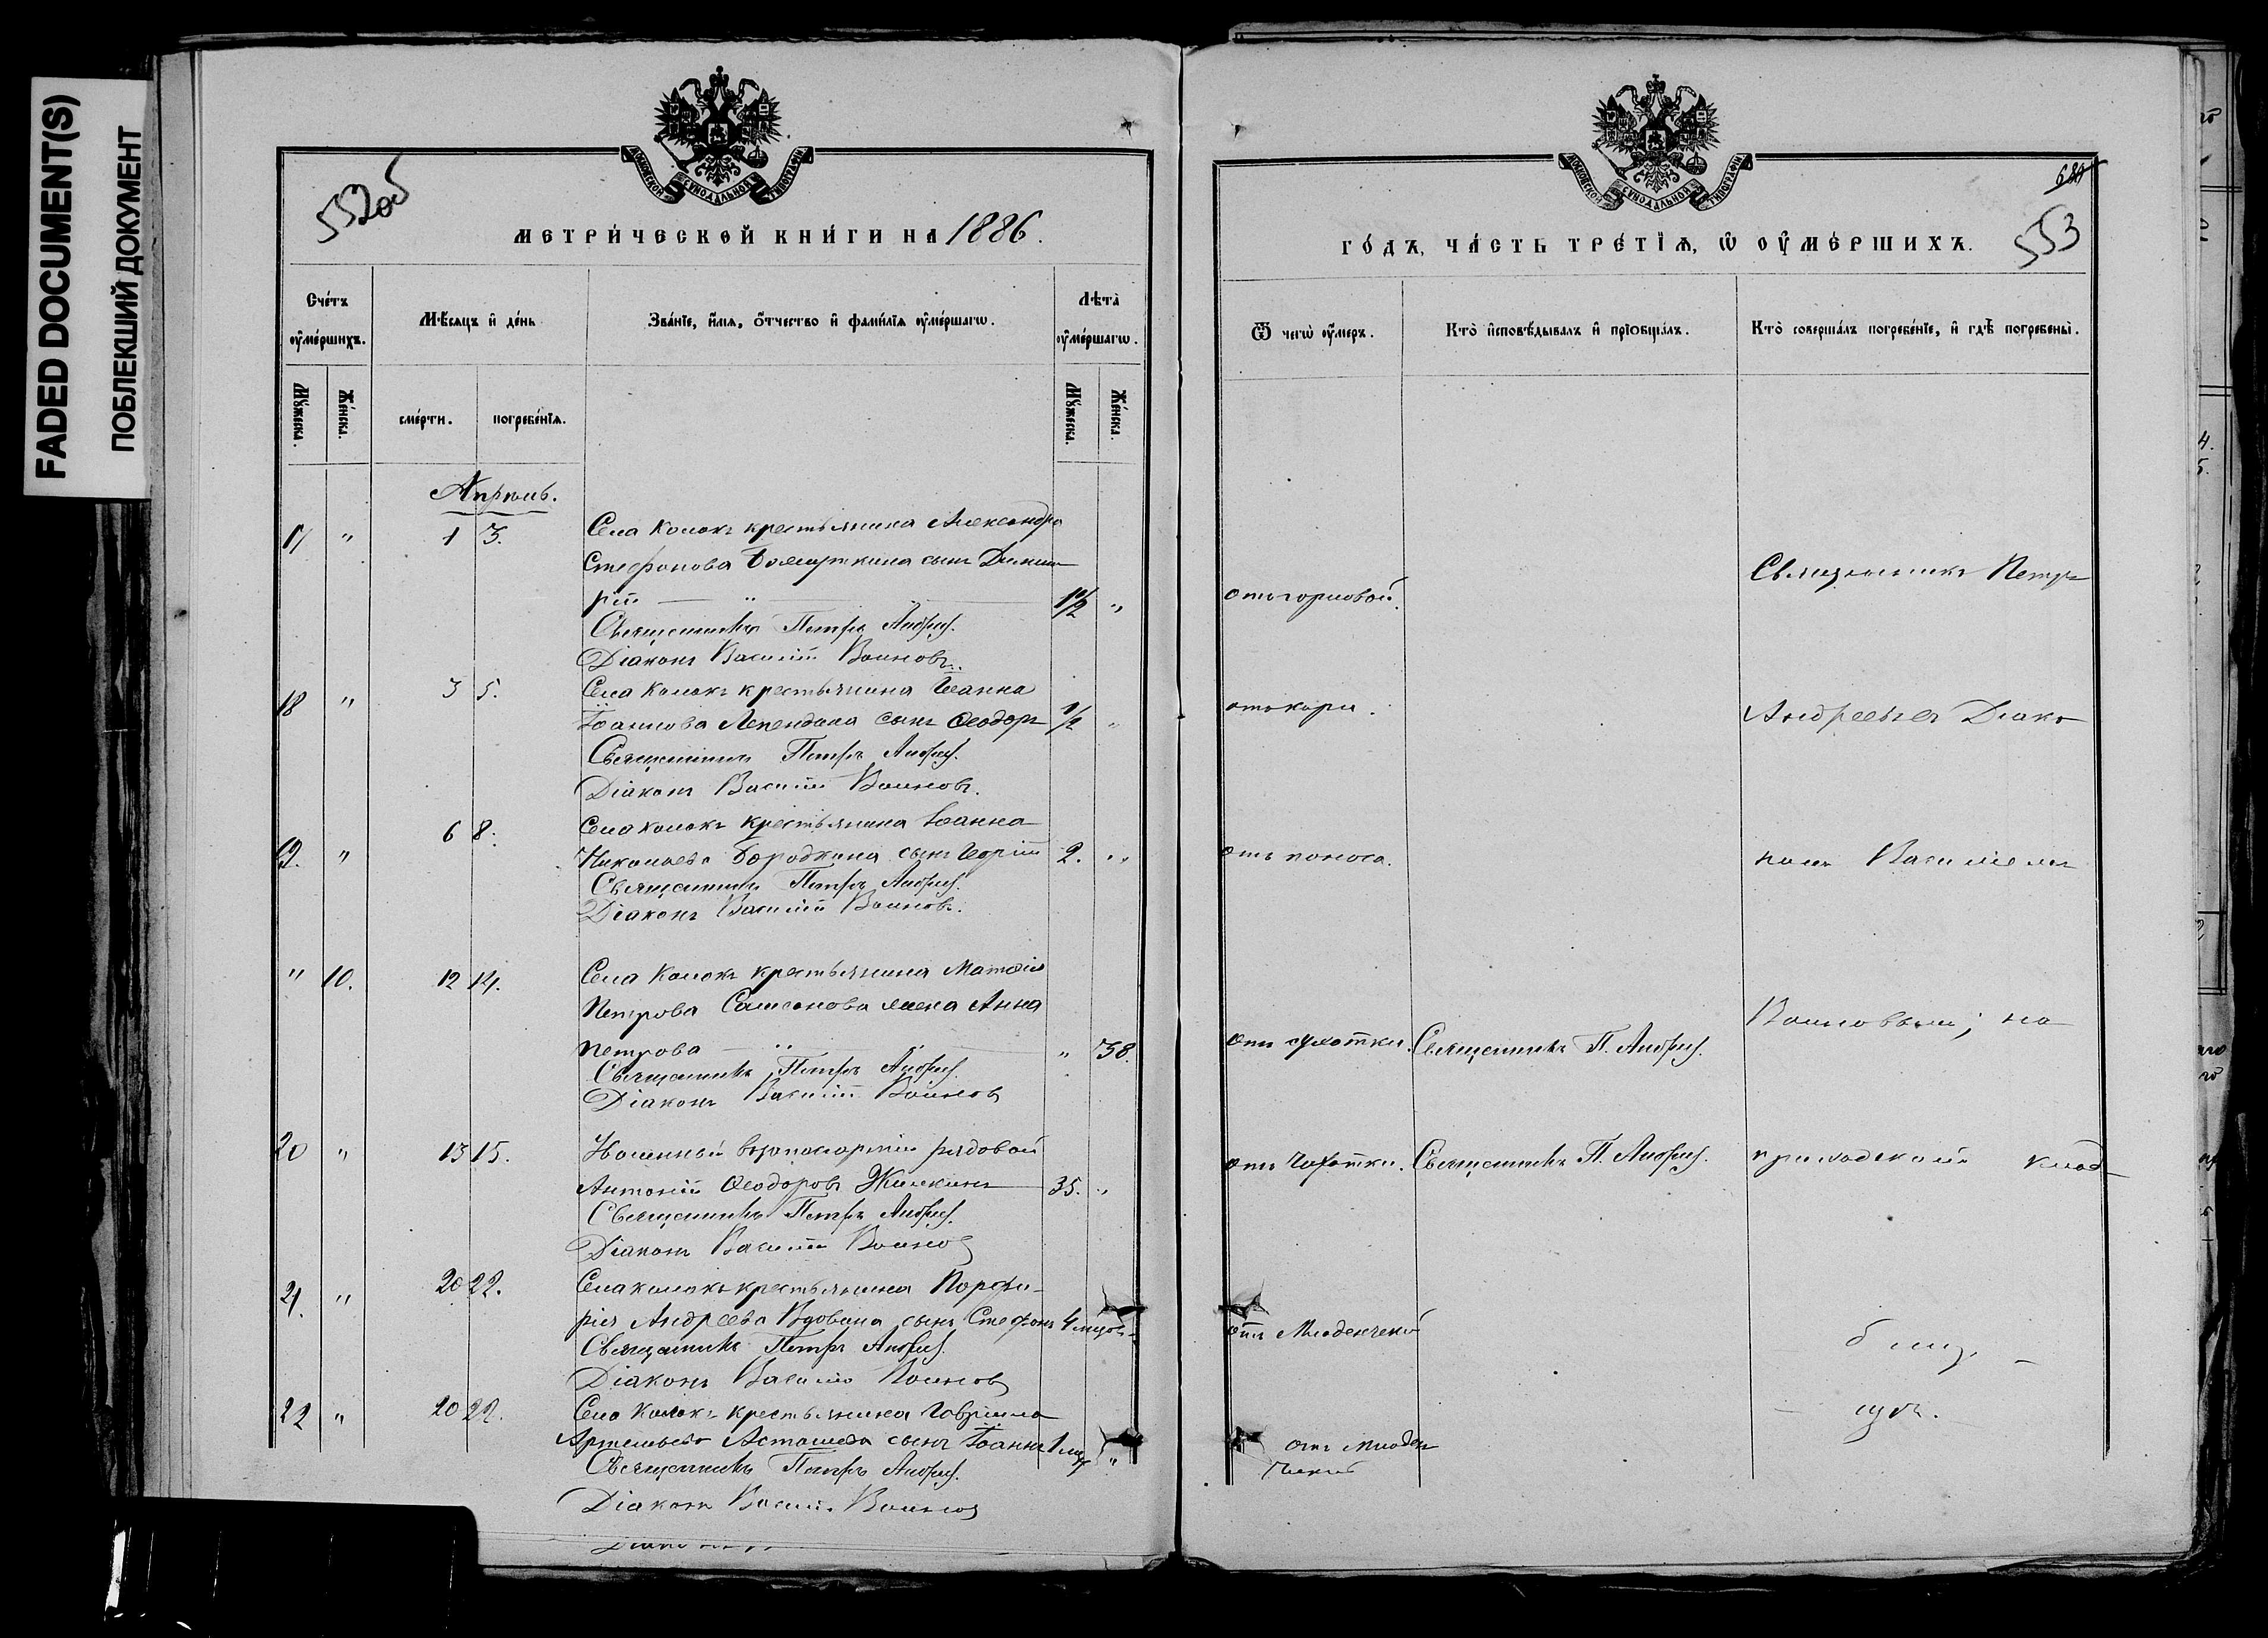 FADED DOCUMENT(S)
ПОБЛЕКШИЙ ДОКУМЕНТ
552об
МОСКОВСКОЙ СѴНОДАЛЬНОЙ ТИПОГРАФІИ
МЕТРИ́ЧЕСКОЙ КНИ́ГИ НА 1886.
Счётъ оу҆ме́ршихъ.
Мѣ́сяцъ и҆ де́нь
Зва́нїе, и҆́мѧ, ѻ҆́тчество и҆ фами́лїѧ оу҆ме́ршагѡ.
Лѣта̀ оу҆ме́ршагѡ.
Му́жеска.
Же́нска.
сме́рти.
погребе́нїѧ.
Му́жеска.
Же́нска.
Апрѣль.
17 " 1 3. Села Колокъ крестьянина Александра
Стефанова сынъ Димит
рій — " — " — 1 1/2 "
Священникъ Петръ Андреев.
Діаконъ Василій Воиновъ.
18 " 3 5. Села Колокъ крестьянина Іоанна
Іоаннова сынъ Ѳеодоръ 1/2 "
Священникъ Петръ Андреев.
Діаконъ Василій Воиновъ.
19. " 6 8. Села Колокъ крестьянина Іоанна
Николаева Бородкина сынъ 2. "
Священникъ Петръ Андреев.
Діаконъ Василій Воиновъ.
" 10. 12 14. Села Колокъ крестьянина Матѳія
Петрова Самсонова жена Анна
Петрова — " — " 38.
Священникъ Петръ Андреев.
Діаконъ Василій Воиновъ
20 " 13 15. рядовой
Антоній Ѳеодоровъ Жилкинъ 35. "
Священникъ Петръ Андреев.
Діаконъ Василій Воиновъ
21. " 20 22. Села Колокъ крестьянина Порфи-
рія Андреева Вдовина сынъ Стефанъ 4 мѣсяц.
Священникъ Петръ Андреев.
Діаконъ Василій Воиновъ
22 " 20 22. Села Колокъ крестьянина Гавріила
Асташева сынъ Іоаннъ 1 мѣс. "
Священникъ Петръ Андреев.
Діаконъ Василій Воиновъ
МОСКОВСКОЙ СѴНОДАЛЬНОЙ ТИПОГРАФІИ
553
ГО́ДЪ, ЧА́СТЬ ТРЕ́ТІѦ, Ѡ҆ ОУ҆МЕ́РШИХЪ.
Ѿ чегѡ̀ оу҆́меръ.
Кто̀ и҆сповѣ́дывалъ и҆ прїобща́лъ.
Кто̀ соверша́лъ погребе́нїе, и҆ гдѣ̀ погребены̀.
отъ горловой.
Священникъ Петръ
отъ кори.
Андреевъ съ Діако
отъ поноса.
номъ Василіемъ
отъ сухотки. Священникъ П. Андреев.
Воиновымъ; на
отъ чахотки. Священникъ П. Андреев.
приходскомъ клад
отъ младенческой
бищѣ.
отъ младен
ческой